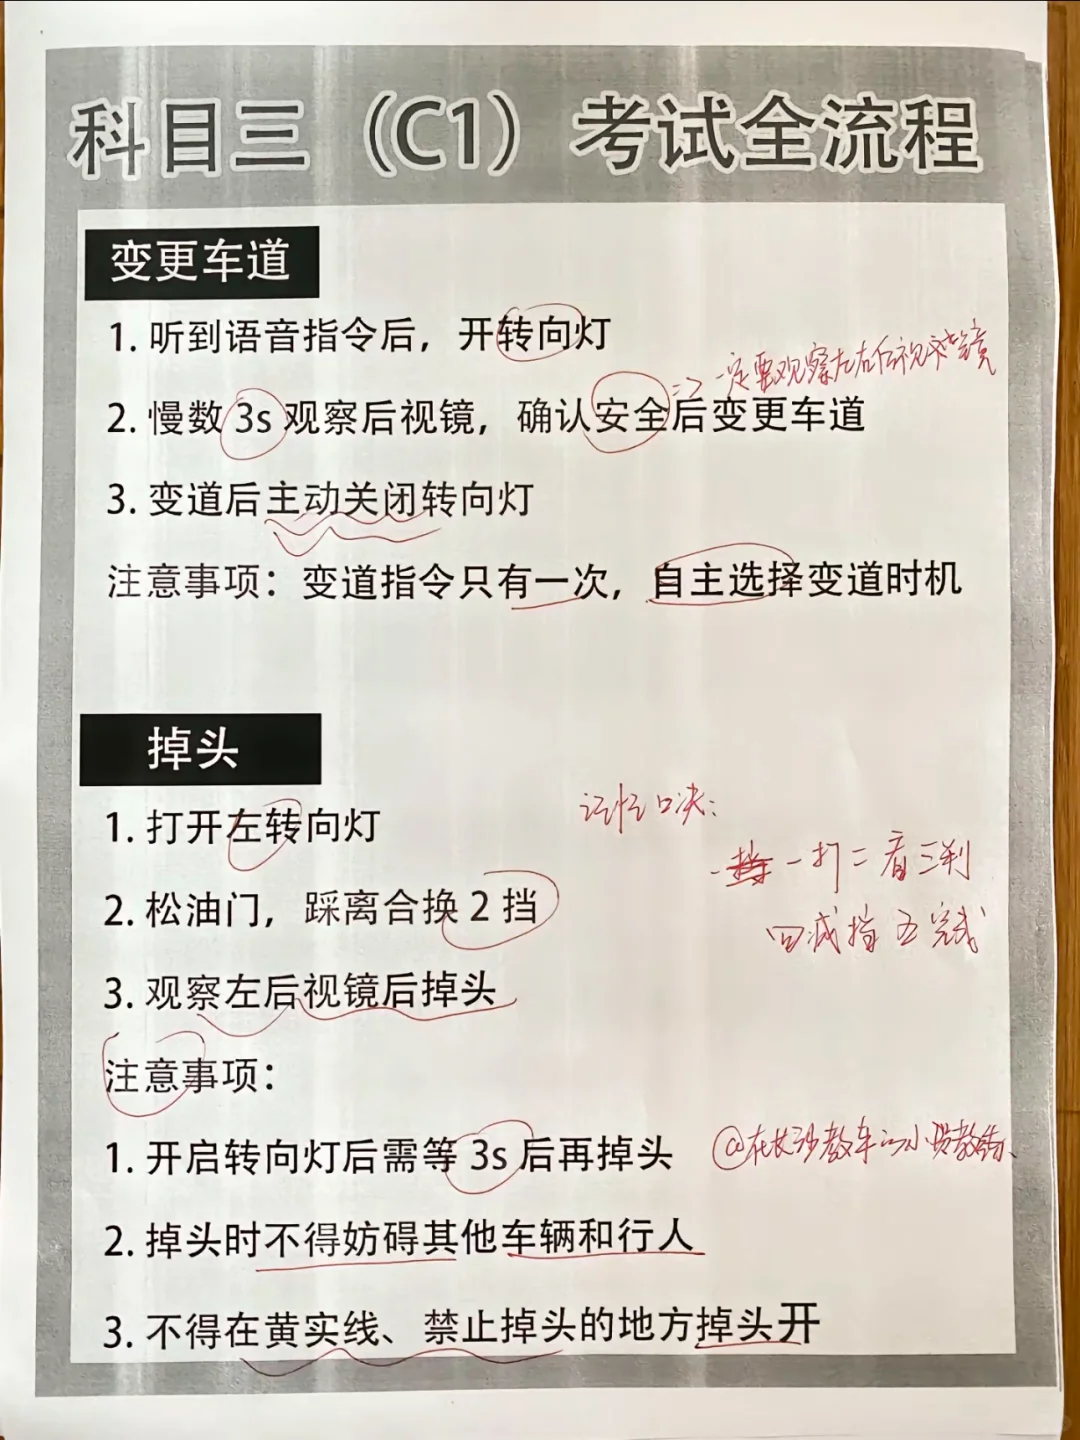 科目三（C1）考试全流程
变更车道
1. 听到语音指令后，开转向灯
=> 一定要观察左右后视镜
2. 慢数 3s 观察后视镜，确认安全后变更车道
3. 变道后主动关闭转向灯
注意事项：变道指令只有一次，自主选择变道时机
掉头
1. 打开左转向灯
记忆口决：
一打二看三判
2. 松油门，踩离合换 2 挡
四减挡五完成
3. 观察左后视镜后掉头
注意事项：
1. 开启转向灯后需等 3s 后再掉头
@在长沙教车的小贺教练
2. 掉头时不得妨碍其他车辆和行人
3. 不得在黄实线、禁止掉头的地方掉头开